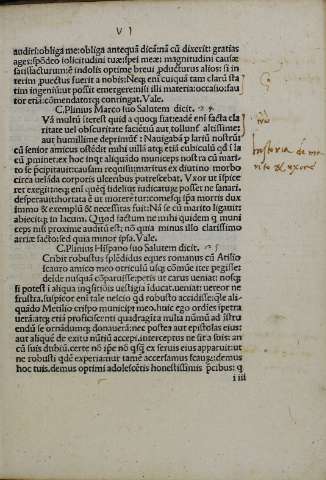 VI
audiri: obliga me: obliga antequā dicā: nā cū dixerit: gratias
ages: spōdeo solicitudini tuæ: spei meæ: magnitudini causæ
satisfacturum: e indolis optime brevi ꝓducturus alios: si in
terim ꝓuectus fuerit a nobis: Neq; eni cuiquā tam clarū sta
tim ingeniū: ut possit emergere: nisi illi materia: occasio: fau
tor etiā: cōmendatorq; contingat. Vale.
C. Plinius Marco suo Salutem dicit. 24
VA multū iterest quid a quoq; fiat: eadē eni facta cla
ritate uel obscuritate faciētiū aut tollunť altissime:
aut humillime deprimunť: Nauigabā p lariū nostrū:
cū senior amicus ostēdit mihi uillā atq; etiā cubiculū qđ i la
cū ꝓminet: ex hoc inqt aliquādo municeps nostra cū mari
to se p̄cipitauit: causam requisiui: maritus ex diutino morbo
circa uelida corporis ulceribus putrescebat. Vxor ut ispice
ret exegit: neq; eni quēq; fidelius iudicaturū: posset ne sanari.
desperauit: hortata ē ut moreretur: comesq; ipsa mortis dux
immo & exemplū & necessitas fuit: Nā se cū marito ligauit:
abiecitq; in lacum. Quod factum ne mihi quidem q muni
ceps nisi proxime auditū est: nō quia minus illo clarissimo
arriæ facto: sed quia minor ipsa. Vale.
C. Plinius Hispano suo Salutem dicit. 25
SCribit robustus splēdidus eques romanus cū Atilio
scauro amico meo otriculū usq; cōmune iter pegisse:
deide nusquā cōparuisse: petis ut carus ueniat: nosq;
si potest i aliqua inqsitiōis uestigia iducat. ueniat: uereor ne
frustra. suspicor eni tale nescio qđ robusto accidisse: qle ali
quādo Metilio crispo municipi meo. huic ego ordies ipetra
uerā: atq; etiā proficiscenti quadragita milia nūmū ad istru
endū se ornādumq; donauerā: nec postea aut epistolas eius:
aut aliquē de exitu nūtiū accepi. interceptus ne sit a suis: an
cū suis dubiū. certe nō ip̄e nō qsq ex seruis eius apparuit: ut
ne robusti qdē experiar: nur tamē accersamus scaurū: demus
hoc tuis. demus optimi adolescētis honestissimis p̄cibus: q
i iii
historia de ma-
rito & uxore